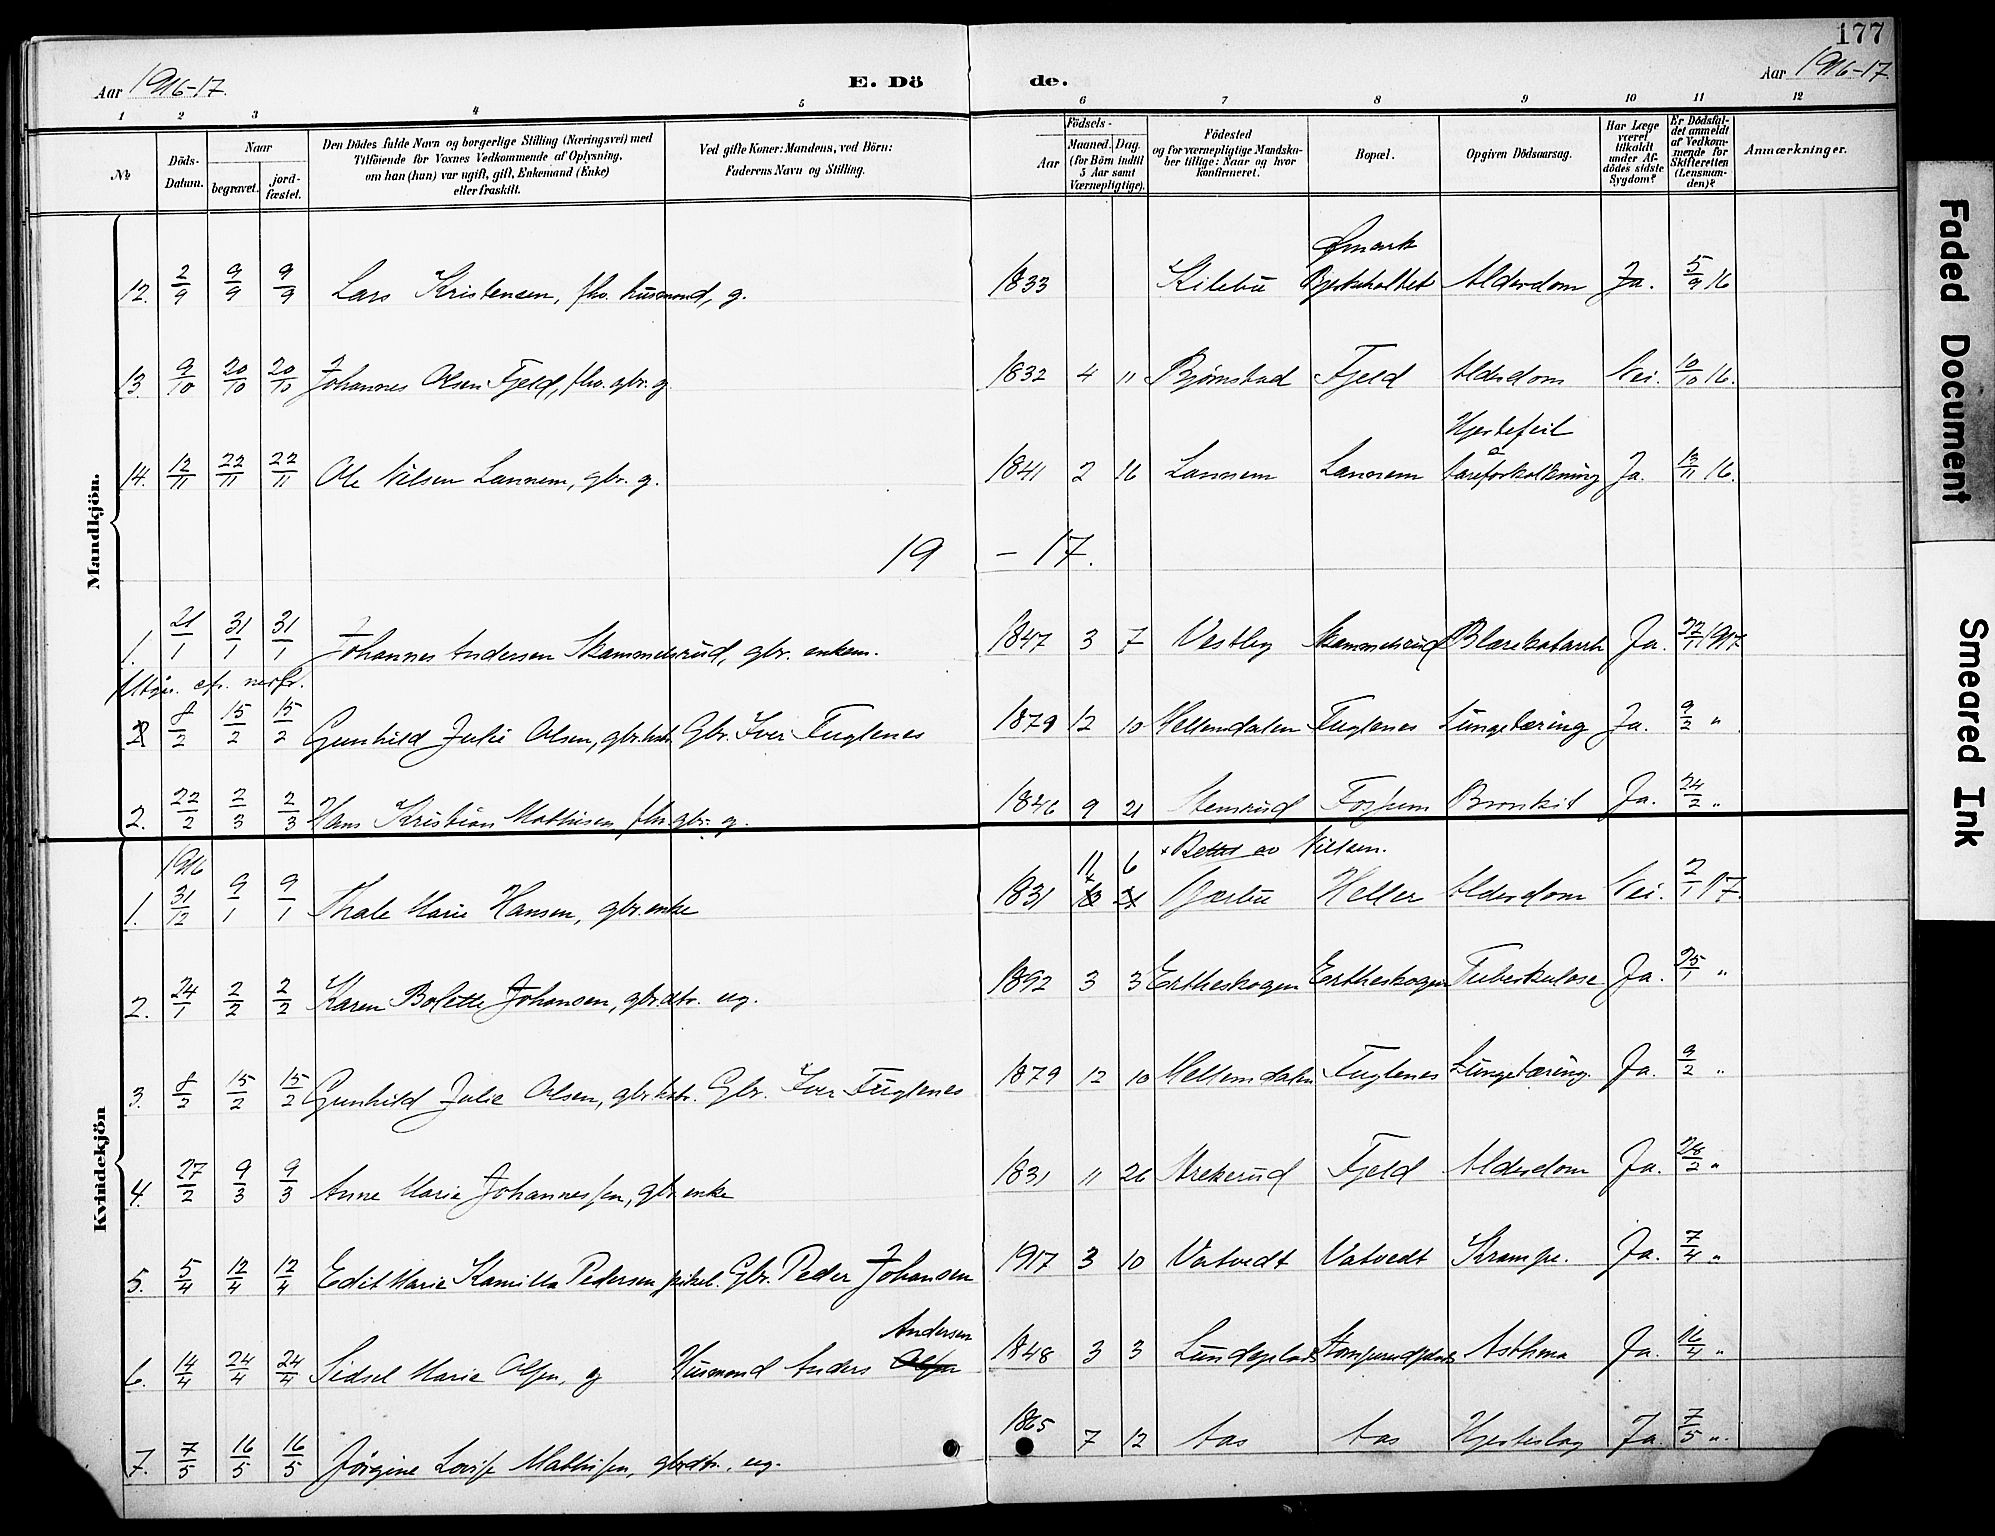 177
Aar 1916-17.
E. Döde.
Aar 1916-17.
1 2 3 4 5 6 7 8 9 10 11 12
№
Döds-Datum.
Naar begravet. jordfæstet.
Den Dödes fulde Navn og borgerlige Stilling (Næringsvei) med Tilföiende for Voxnes Vedkommende af Oplysning, om han (hun) var ugift, gift, Enkemand (Enke) eller fraskilt.
Ved gifte Koner: Mandens, ved Börn: Faderens Navn og Stilling.
Födsels-
Aar
Maaned. Dag. (for Börn indtil 5 Aar samt Værnepligtige).
Födested og for værnepligtige Mandskaber tillige: Naar og hvor konfirmeret.
Bopæl.
Opgiven Dödsaarsag.
Har Læge været tilkaldt under Afdödes sidste Sygdom?
Er Dödsfaldet anmeldt af Vedkommende for Skifteretten (Lensmanden)?
Anmærkninger.
Mandkjön.
12. 2/9 9/9 9/9 Lars Kristensen, fhv. husmand, g. 1833 Kilebu Ømark Bjerkeholtet Alderdom Ja. 5/9 16
13. 9/10 20/10 20/10 Johannes Olsen Fjeld, fhv. gbr. g 1832 4 11 Bjørnstad Fjeld Alderdom Nei. 12/10 16.
14. 12/11 22/11 22/11 Ole Nilsen Lannem, gbr. g. 1841 2 16 Lannem Lannem Hjertefeil & Aareforkalkning Ja. 13/11 16.
19 - 17.
1. 21/1 31/1 31/1 Johannes Andersen Skammelsrud, gbr. enkem. 1847 3 7 Vestby Skammelsrud Blærekatarrh Ja. 22/1 1917
Utgår. cfr. nedfr.
2 8/2 15/2 15/2 Gunhild Julie Olsen, gbr.hstr. Gbr. Iver Fuglenes 1879 12 10 Hellemdalen Fuglenes Lungetæring Ja. 9/2 "
2. 22/2 2/3 2/3 Hans Kristian Mathisen, fhv. gbr. g. 1846 9 21 Stemsrud Fosjum Bronkit Ja. 24/2 "
Kvindekjön
× Rettet av Nielsen.
1. 1916 31/12 9/1 9/1 Thale Marie Hansen, gbr.enke 1831 11 6 Gjæsbu Heller Alderdom Nei. 2/1 17.
2. 24/1 2/2 2/2 Karen Bolette Johansen, gbr.dtr. ug. 1892 3 3 Ertheskogen Ertheskogen Tuberkulose Ja. 25/1 "
3. 8/2 15/2 15/2 Gunhild Julie Olsen, gbr.hstr. Gbr. Iver Fuglenes 1879 12 10 Hellemdalen Fuglenes Lungetæring. Ja. 9/2 "
4. 27/2 9/3 9/3 Anne Marie Johannessen, gbr enke 1831 11 26 Strekerud Fjeld Alderdom Ja. 28/2 "
5. 5/4 12/4 12/4 Edit Marie Kamilla Pedersen, pikeb. Gbr. Peder Johansen 1917 3 10 Vatvedt Vatvedt Krampe. Ja. 7/4 "
6. 14/4 24/4 24/4 Sidsel Marie Olsen, g Husmand Anders Olsen Andersen 1848 3 3 Lundeplads Asthma Ja. 16/4 "
7. 7/5 16/5 16/5 Jørgine Lovise Mathisen, gbr.dtr. ug. 1865 7 12 Aas Aas Hjerteslag Ja. 7/5 "
Faded Document
Smeared Ink